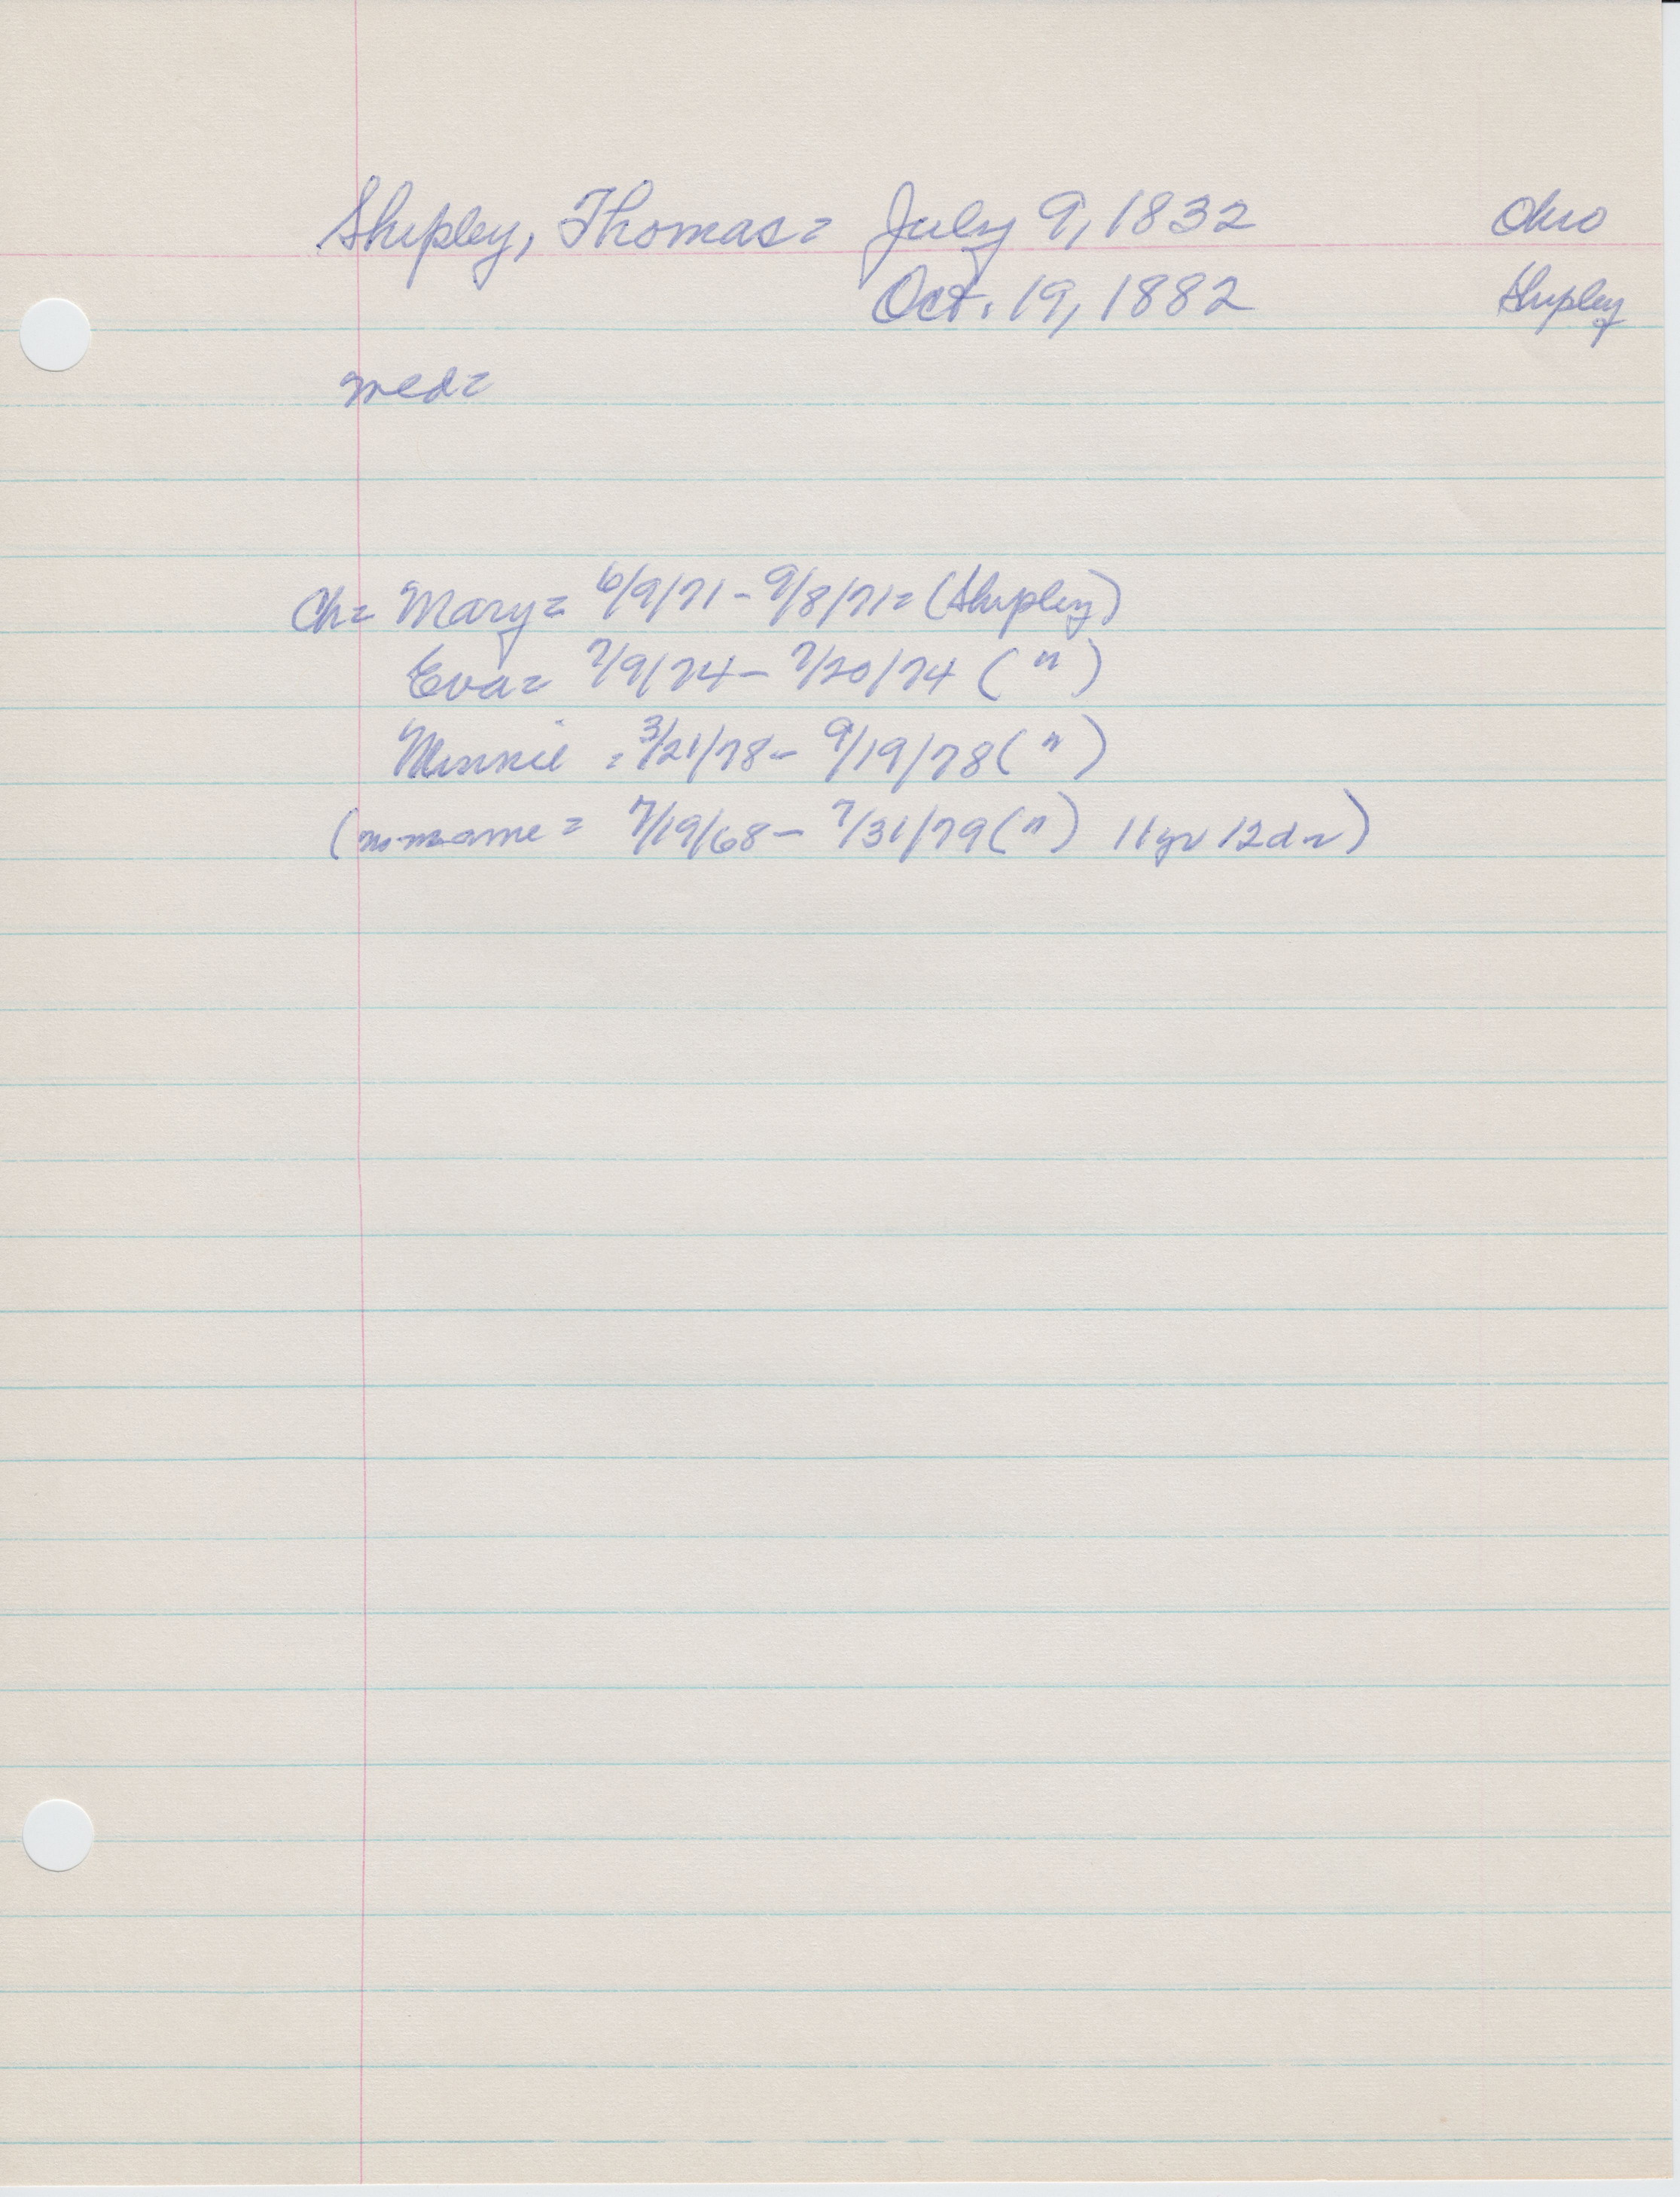 Shipley, Thomas = July 9, 1832 Ohio
Oct. 19, 1882 Shipley
med =
Ch = Mary = 6/9/71 - 9/8/71 = (Shipley)
Eva = 7/9/74 - 7/20/74 ( " )
Minnie = 3/21/78 - 9/19/78 ( " )
(no name = 7/19/68 - 7/31/79 ( " ) 11 yr 12 da)